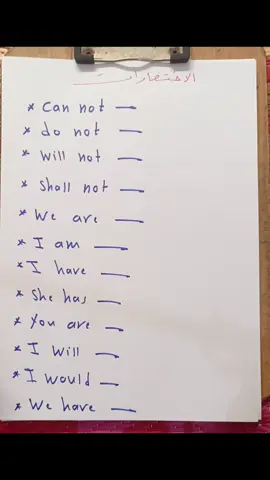 الاختصارات
* Can not —
* do not —
* Will not —
* Shall not —
* We are —
* I am —
* I have —
* She has —
* You are —
* I will —
* I would —
* We have —